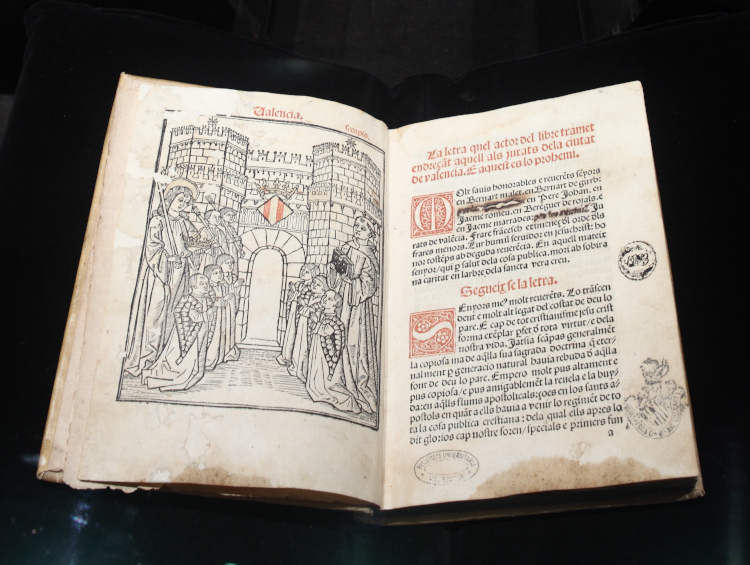 Valencia.
La letra quel actor del libre tramet
endreçãt aquell als jurats dela ciutat
de valencia. E aquest es lo prohemi.
MOlt sauis honorables e reuerẽts sẽyors
en Bernart malet, en Bernart de
en Pere Johan, en
Jacme romeu, en Berẽguer de rojals, e
en Jacme marrades: Ju
rats de valẽcia. Frare frãcesch eximeneç dl orde dls
frares menors. Lur humil seruidor en jesuchrist: ho
nor tostẽps ab deguda reuerẽcia. En aquell mateix
senyor/ qui p salut dela cosa publica, mori ab sobira
na caritat en larbre dela sancta vera creu.
Segueig se la letra.
SEnyors me? molt reuerẽts. Lo trãscen
dent e molt alt legat del costat de deu lo
pare. E cap de tot cristianisme jesu crist
forma e exẽplar pfet d rota virtut/ e dela
nostra vida. Jatsia scãpas generalmẽt
la copiosa ma de aq̃lla sua sagrada doctrina q̃ eter
nalment p generacio natural hauia rebuda d aq̃lla
font de deu lo pare. Empero molt pus altament e
pus copiosa/ e pus amigablemẽt la reuela e la buy
da: en aq̃lls flums apostolicals; çoes en los sants a
postols en quãt a ells hauia a venir lo regimẽt de to
ta la cosa publica crestiana: dela qual ells apres lo
dit glorios cap nostre foren/ specials e primers fun
a